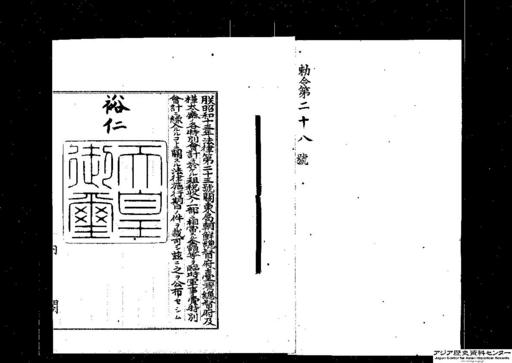 勅令第二十八號
朕昭和十三年法律第二十三號關東局朝鮮總督府臺灣總督府及
樺太廳ノ各特別會計ニ於ケル租税收入ノ一部ニ相當スル金額等ヲ臨時軍事費特別
會計ニ繰入ルルコトニ關スル法律施行期日ノ件ヲ裁可シ茲ニ之ヲ公布セシム
裕仁
天皇御璽
内閣
アジア歴史資料センター
Japan Center for Asian Historical Records